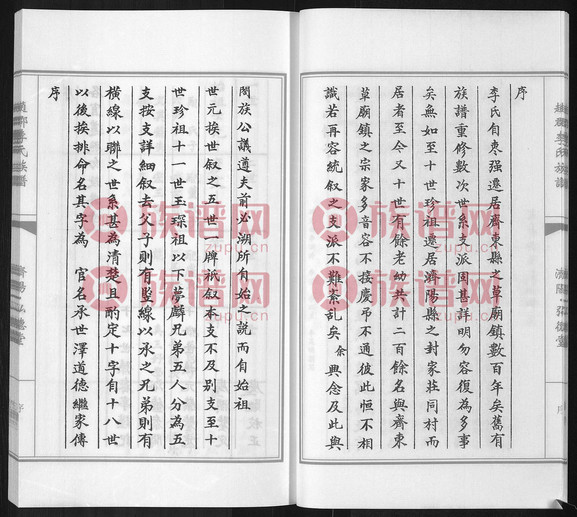 序
李氏自棗强遷居齊東縣之草廟鎮數百年矣舊有
族譜重修數次世系支派固甚詳明勿容復為多事
矣無如至十世珍祖遷居濟陽縣之封家莊同村而
居者至今又十世有餘老幼共計二百餘名與齊東
草廟鎮之宗家多音容不接慶弔不通彼此恒不相
識若再容統叙之支派不難紊乱矣余興念及此與
閤族公議遵夫前必溯所自始之說而自始祖
世元挨世叙之五世 牌祇叙本支不及别支至十
世珍祖十一世玉琛祖以下夢麟兄弟五人分為五
支按支詳細叙去父子則有竪線以承之兄弟則有
橫線以聯之世系甚為清楚且酌定十字自十八世
以後挨排命名其字為 官名承世澤道德繼家傳
序
族谱网
zupu.cn
族谱网
zupu.cn
族谱网
zupu.cn
族谱网
zupu.cn
族谱网
zupu.cn
族谱网
zupu.cn